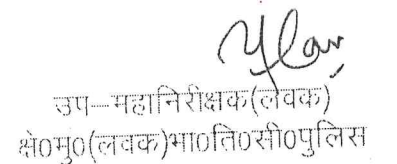 उप–महानिरीक्षक(लवक)
क्षे०मु०(लवक)भा०ति०सी०पुलिस